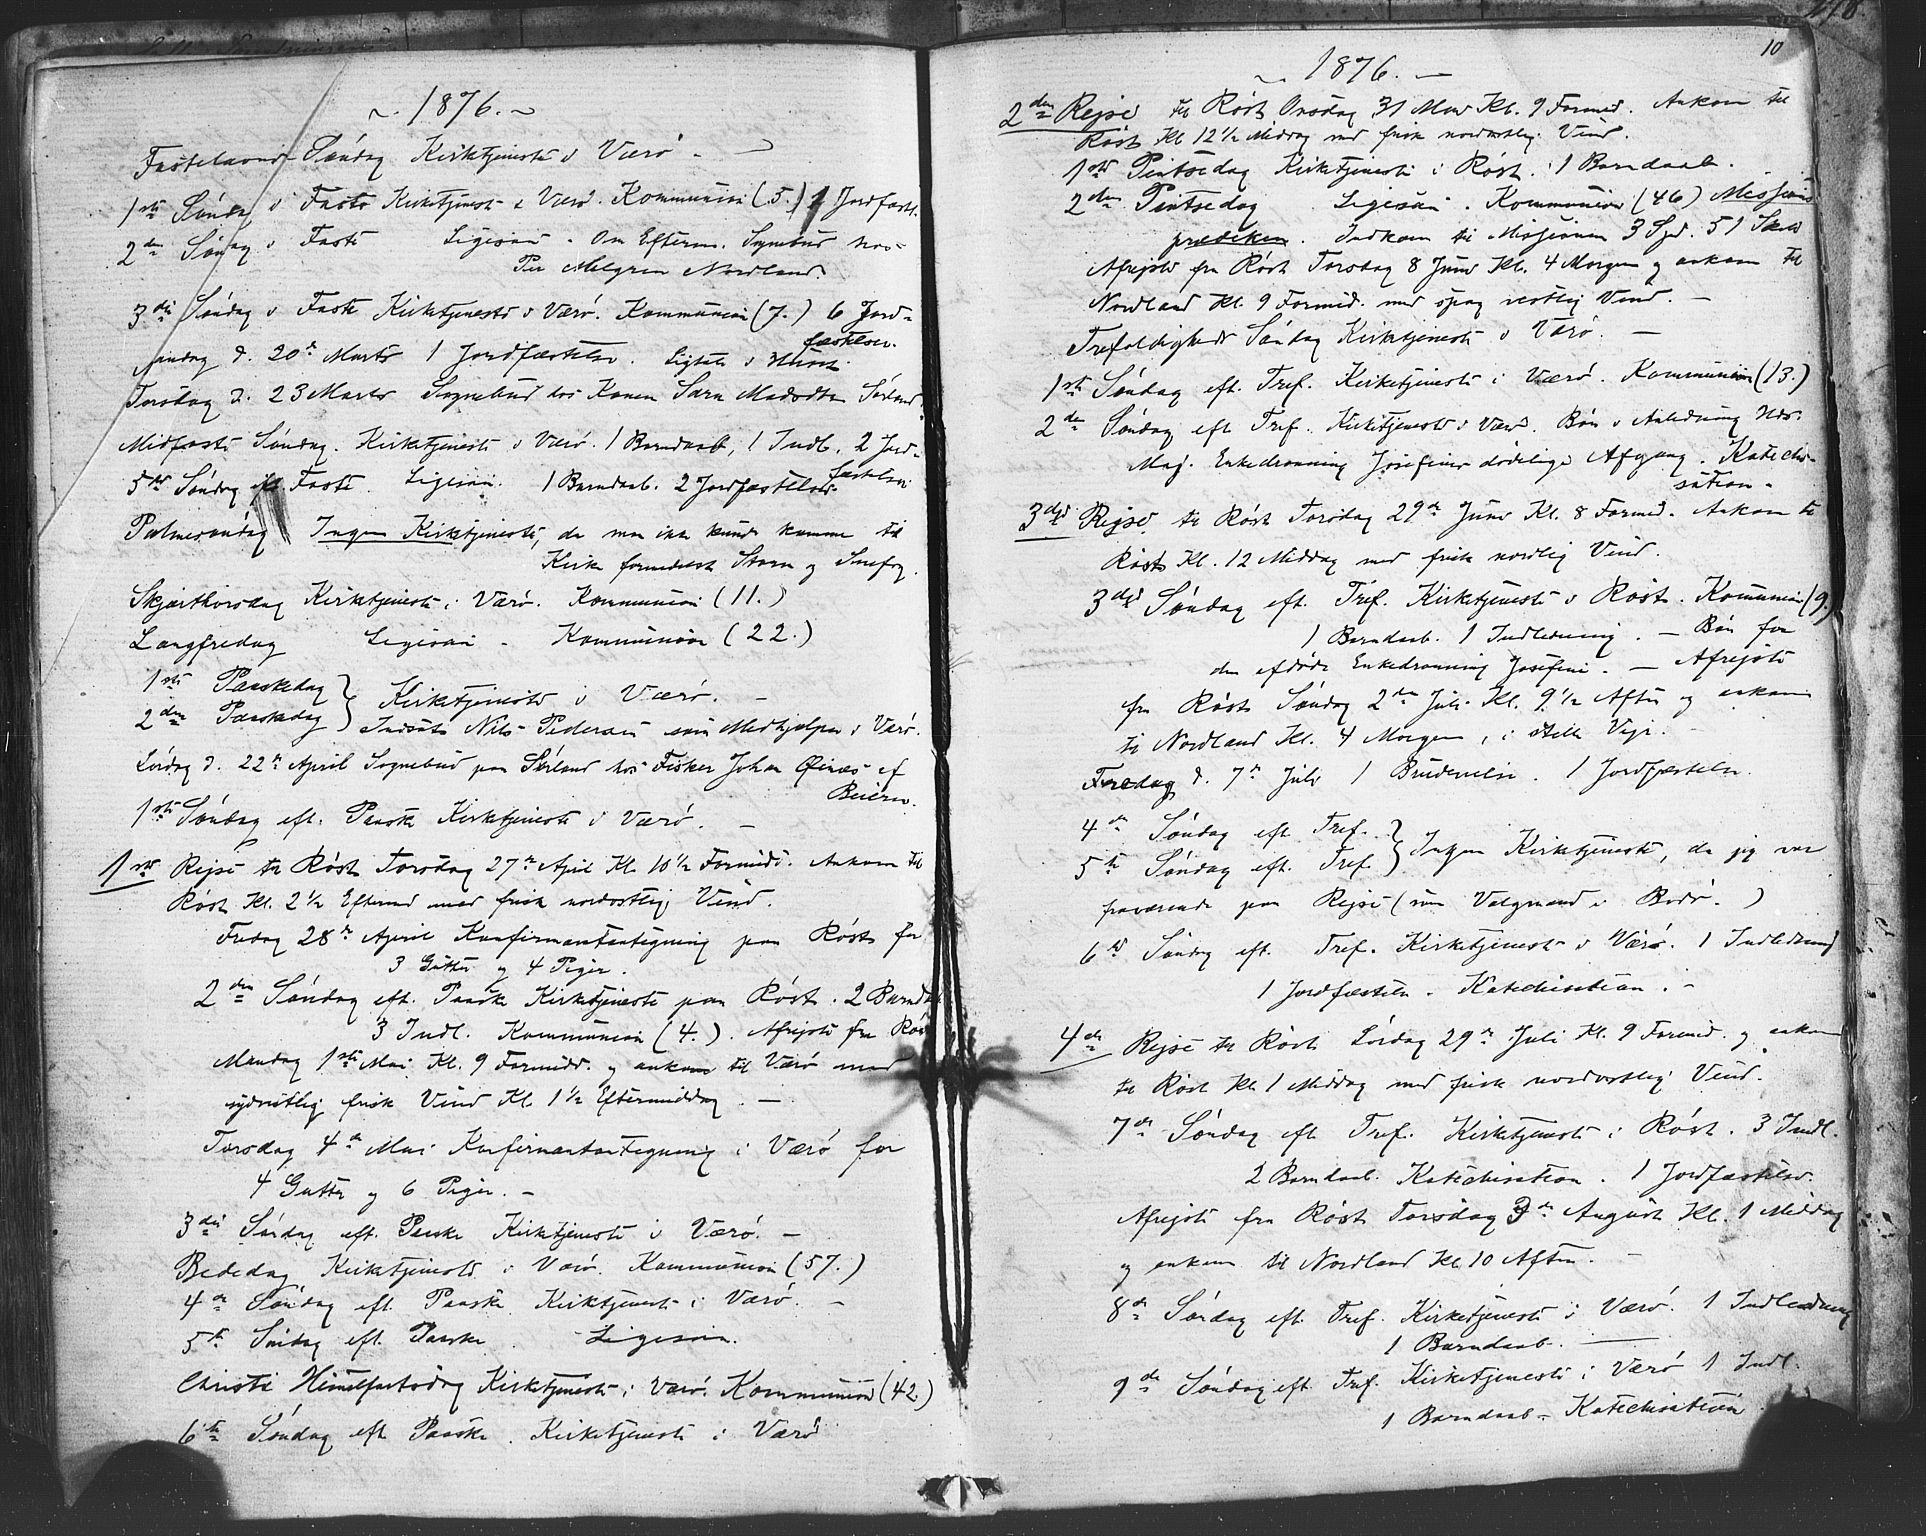 1876.
Fastelavns Søndag Kirketjeneste i Værø.
1ste Søndag i Faste Kirketjeneste i Værø. Kommunion (5.) 1 Jordfæst.
2den Søndag i Faste Ligesaa. Om Efterm. Sognebud hos
Per Nordland
3die Søndag i Faste Kirketjeneste i Værø. Kommunion (7.) 6 Jord-
fæstelser.
Mandag d. 20de Marts 1 Jordfæstelse. Ligtale i Huset
Torsdag d. 23 Marts Sognebud hos Konen Sørland.
Midfaste Søndag. Kirketjeneste i Værø. 1 Barndaab, 1 Indl. 2 Jord-
fæstelser
5te Søndag i Faste. Ligesaa. 1 Barndaab. 2 Jordfæstelser
Palmesøndag Ingen Kirketjeneste, da man ikke kunde komme til
Kirke formedelst Storm og Snefog.
Skjærthorsdag Kirketjeneste i Værø. Kommunion (11.)
Langfredag Ligesaa - Kommunion (22.)
1ste Paaskedag } Kirketjeneste i Værø. -
2den Paaskedag } Indsatte Nils Pedersen som Medhjælper i Værø.
Lørdag d. 22de April Sognebud paa Sørland hos Fisker Johan Øinæs af
Beiern.
1ste Søndag eft. Paaske Kirketjeneste i Værø. -
1ste Rejse til Røst Torsdag 27de April Kl. 10 1/2 Formidd. Ankom til
Røst Kl. 2 1/2 Eftermd med frisk nordostlig Vind.
Fredag 28de April Konfirmantantegning paa Røst for
3 Gutter og 4 Piger.
2den Søndag eft. Paaske Kirketjeneste paa Røst. 2 Barndaab
3 Indl. Kommunion (4.). Afrejste fra Røst
Mandag 1ste Mai Kl. 9 Formidd. og ankom til Værø med
sydvestlig frisk Vind Kl. 1 1/2 Eftermiddag. -
Torsdag 4de Mai Konfirmantantegning i Værø for
4 Gutter og 6 Piger. -
3die Søndag eft. Paaske Kirketjeneste i Værø. -
Bededag Kirketjeneste i Værø. Kommunion (57.)
4de Søndag eft. Paaske Kirketjeneste i Værø. -
5te Søndag eft. Paaske. Ligesaa.
Christi Himmelfartsdag Kirketjeneste i Værø. Kommunion (42.)
6te Søndag eft. Paaske. Kirketjeneste i Værø
10
1876. -
2den Rejse til Røst Onsdag 31 Mai Kl. 9 Formid. Ankom til
Røst Kl 12 1/2 Middag med frisk nordostlig Vind.
1ste Pintsedag Kirketjeneste i Røst. 1 Barndaab.
2den Pintsedag Ligesaa. Kommunion (46) Missions
prædiken. Indkom til Missionen 3 Spd. 51 Skill
Afrejste fra Røst Torsdag 8 Juni Kl. 4 Morgen og ankom til
Nordland Kl. 9 Formid. med spag vestlig Vind. -
Trefoldigheds Søndag Kirketjeneste i Værø. -
1ste Søndag eft. Tref. Kirketjeneste i Værø. Kommunion (13.)
2den Søndag eft Tref. Kirketjeneste i Værø. Bøn i Anledning Hds.
Maj. Enkedronning Josefines dødelige Afgang. Katechi-
sation.
3die Rejse til Røst Torsdag 29de Juni Kl. 8 Formid. Ankom til
Røst Kl. 12 Middag med frisk nordlig Vind.
3die Søndag eft. Tref. Kirketjeneste i Røst. Kommunion (9.)
1 Barndaab. 1 Indledning. - Bøn for
den afdøde Enkedronning Josefine. - Afrejste
fra Røst Søndag 2den Juli Kl. 9 1/2 Aften og ankom
til Nordland Kl. 4 Morgen, i stille Vejr. -
Fredag d. 7de Juli 1 Brudevielse. 1 Jordfæstelse.
4de Søndag eft Tref. } Ingen Kirketjeneste, da jeg var
5te Søndag eft. Tref }
fraværende paa Rejse (som Valgmand i Bodø.)
6te Søndag eft. Tref. Kirketjeneste i Værø. 1 Indledning
1 Jordfæstelse. Katechisation. -
4de Rejse til Røst Lørdag 29de Juli Kl. 9 Formid. og ankom
til Røst Kl. 1 Middag med frisk nordostlig Vind.
7de Søndag eft Tref. Kirketjeneste i Røst. 3 Indl.
2 Barndaab. Katechisation. 1 Jordfæstelse.
Afrejste fra Røst Torsdag 3de August Kl. 1 Middag
og ankom til Nordland Kl. 10 Aften. -
8de Søndag eft. Tref. Kirketjeneste i Værø. 1 Indledning
1 Barndaab. -
9de Søndag eft. Tref. Kirketjeneste i Værø 1 Indl.
1 Barndaab - Katechisation